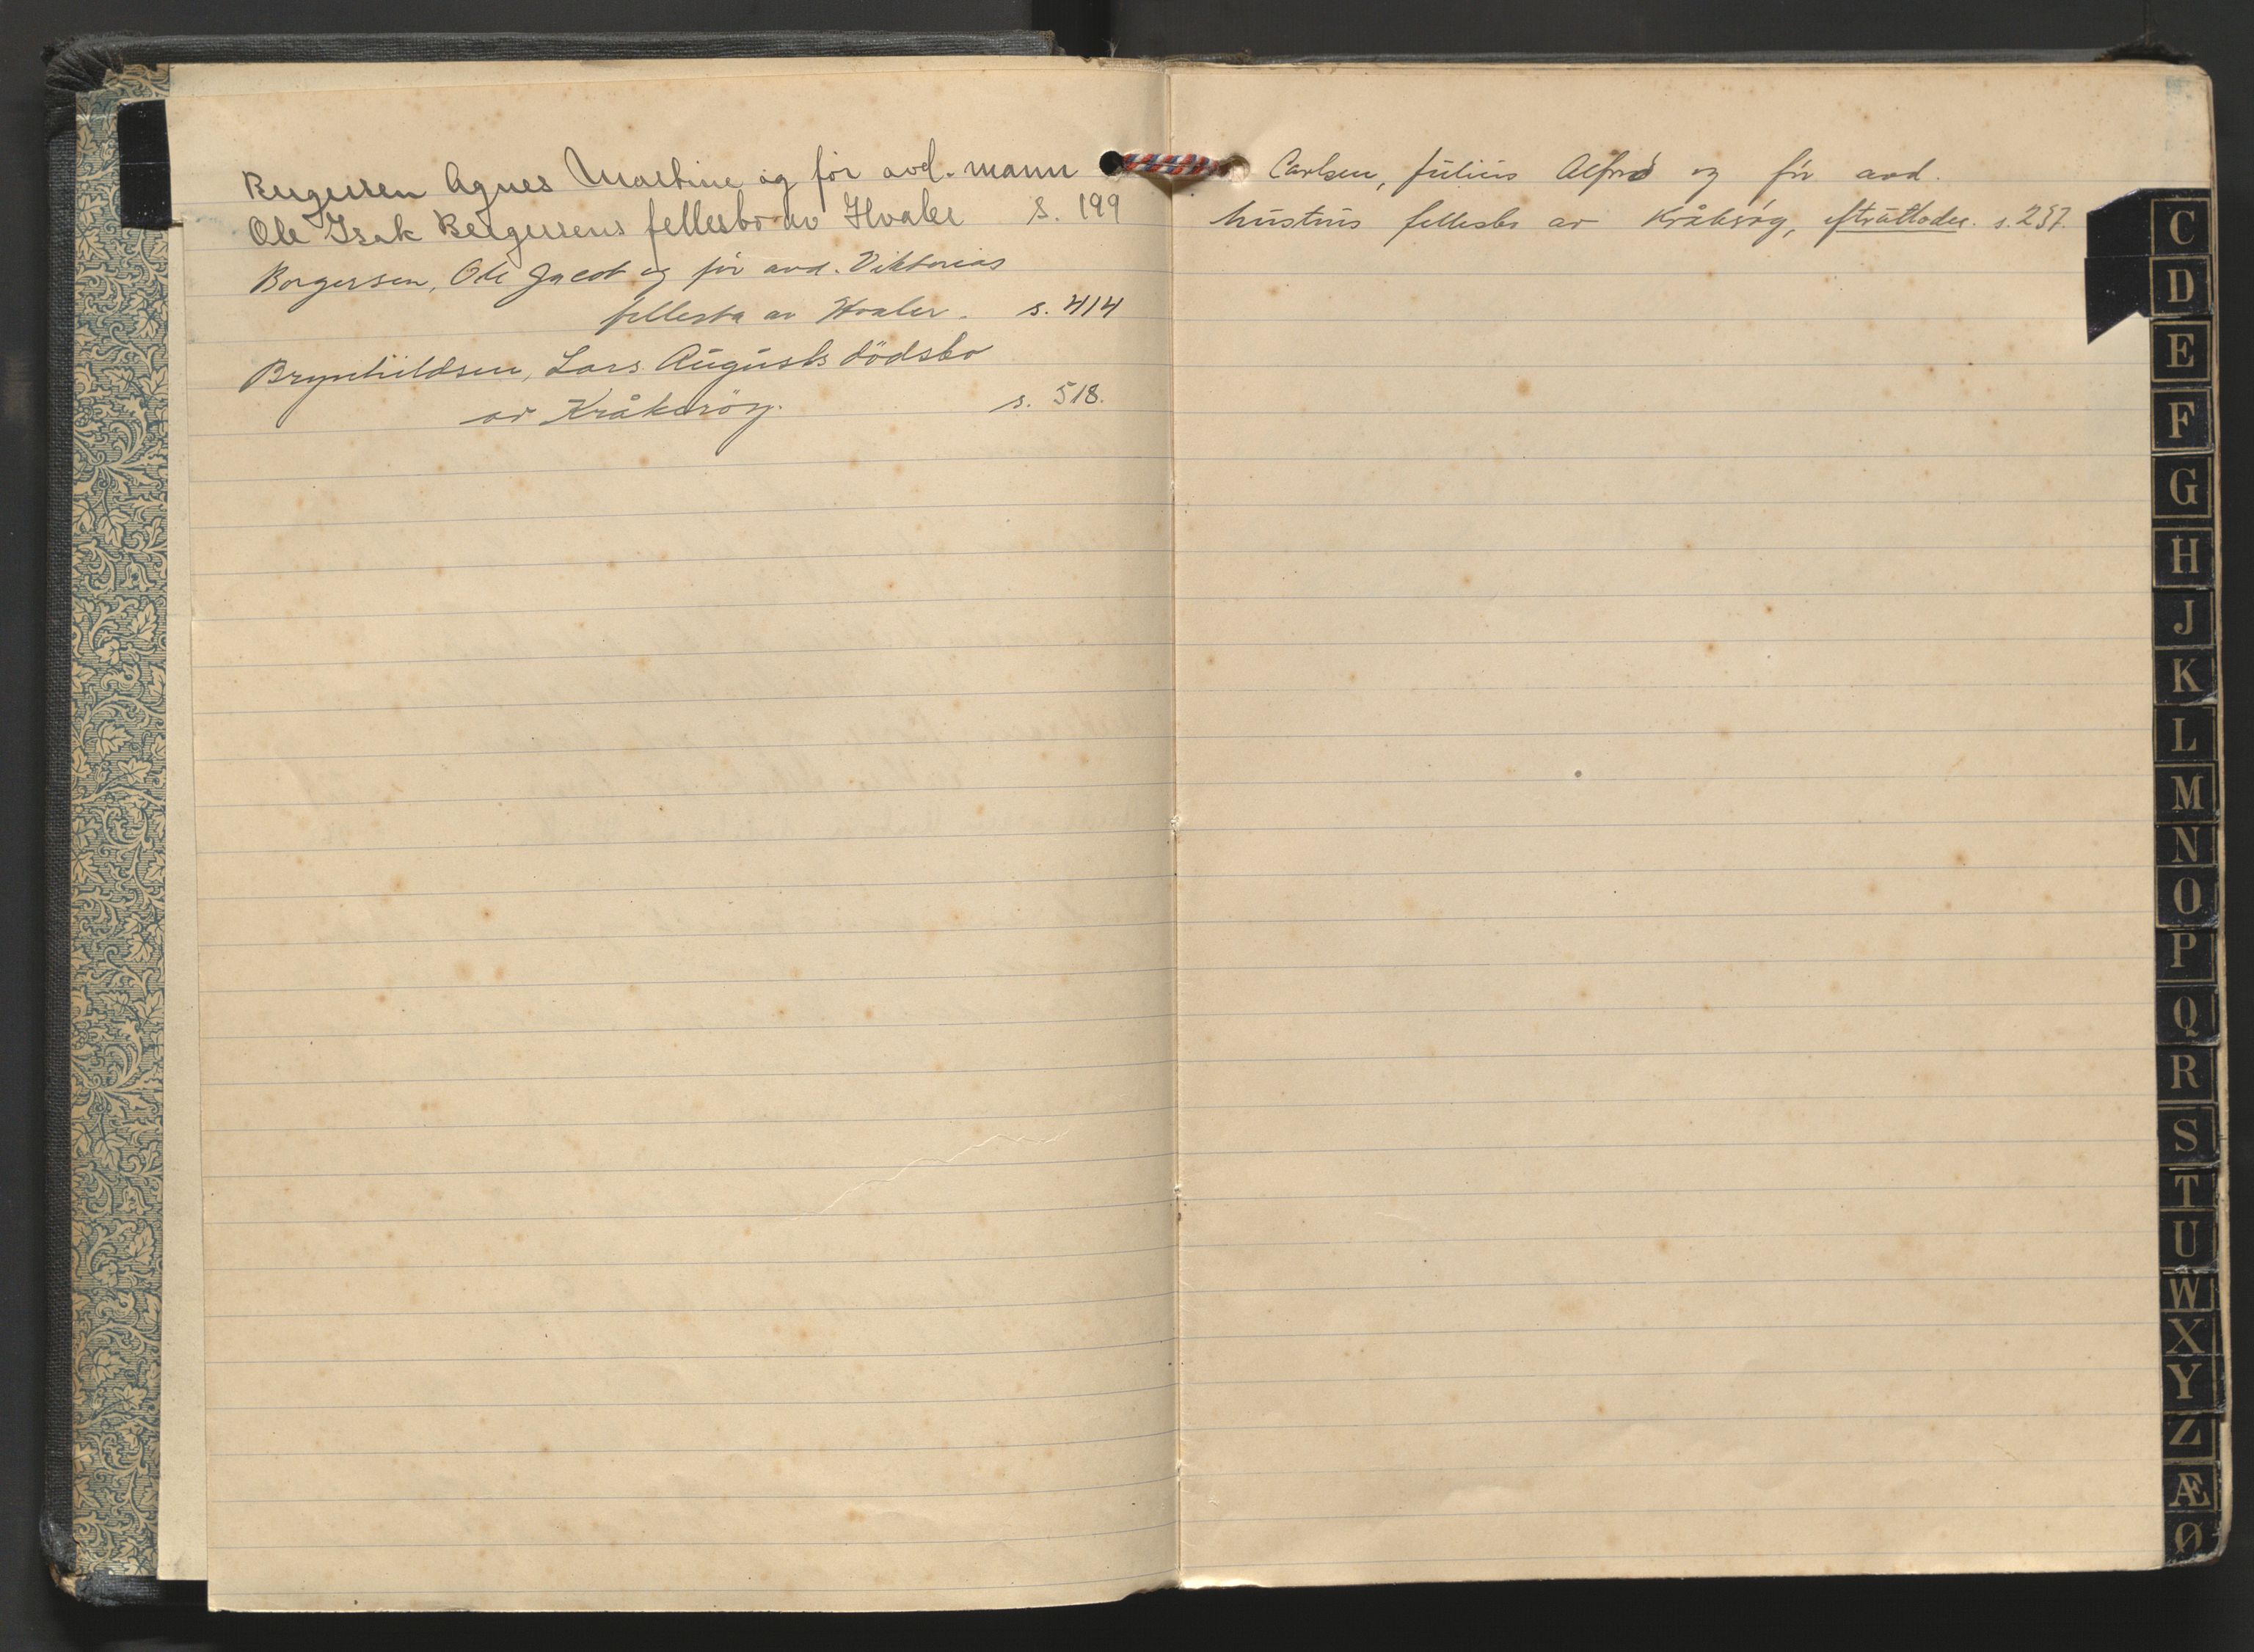 Bergersen Agnes Martine og for avd. mann
Ole Isak Bergersens fellesbo av Hvaler s. 199
Borgersen, Ole Jacob og for avd. Viktorias
fellesbo av Hvaler. s. 414
Brynhildsen, Lars Augusts dödsbo
av Kråkeröy. s. 518.
Carlsen, Julius Alfred og for avd.
hustrus fellesbo av Kråkeröy, s. 257.
C
D
E
F
G
H
J
K
L
M
N
O
P
Q
R
S
T
U
W
X
Y
Z
Æ
Ø